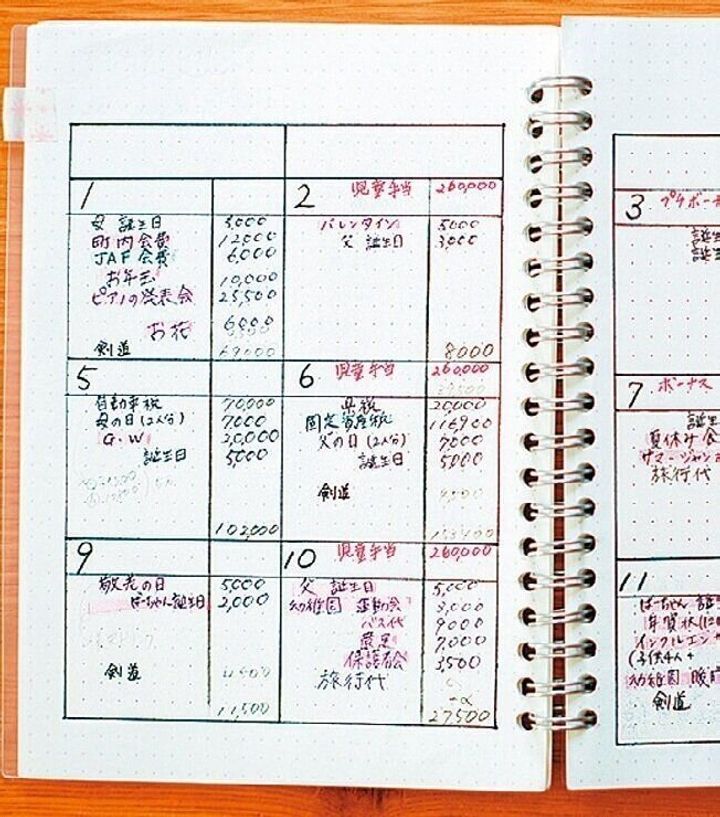 1
母 誕生日 3,000
町内会費 12000
JAF 会費 6000
お年玉 10,000
ピアノの発表会 25,500
お花
剣道
2 児童手当 260,000
バレンタイン 5000
父 誕生日 3,000
8000
5
自動車税 70,000
母の日(2人分) 7000
G・W 20,000
誕生日 5,000
102,000
6 児童手当 260,000
県税 20,000
固定資産税 116,900
父の日(2人分) 7000
誕生日 5,000
剣道
9
敬老の日 5,000
ばーちゃん誕生日 2,000
剣道
11,500
10 児童手当 260,000
父 誕生日 5,000
幼稚園 運動会 3,000
バス代 9000
7,000
保護者会 3,500
旅行代
27,500
3
誕生
誕生
7 ボーナス
誕生
夏休み
サマージャン
旅行代
11
ばーちゃん 誕生
年賀状
インフルエン
(子供4人+
幼稚園 暖
剣道